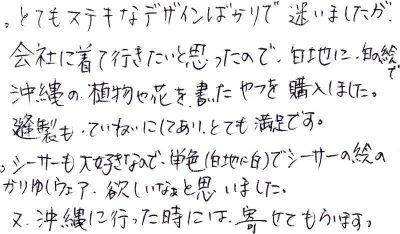 。とてもステキなデザインばかりで 迷いましたが、
会社に着て行きたいと思ったので、白地に、白の絵で
沖縄の植物や花を書いたやつを購入しました。
縫製も、ていねいにしてあり、とても満足です。
。シーサーも大好きなので、単色(白地に白)でシーサーの絵の
かりゆしウェア、欲しいなぁと思いました。
又、沖縄に行った時には、寄せてもらいます。